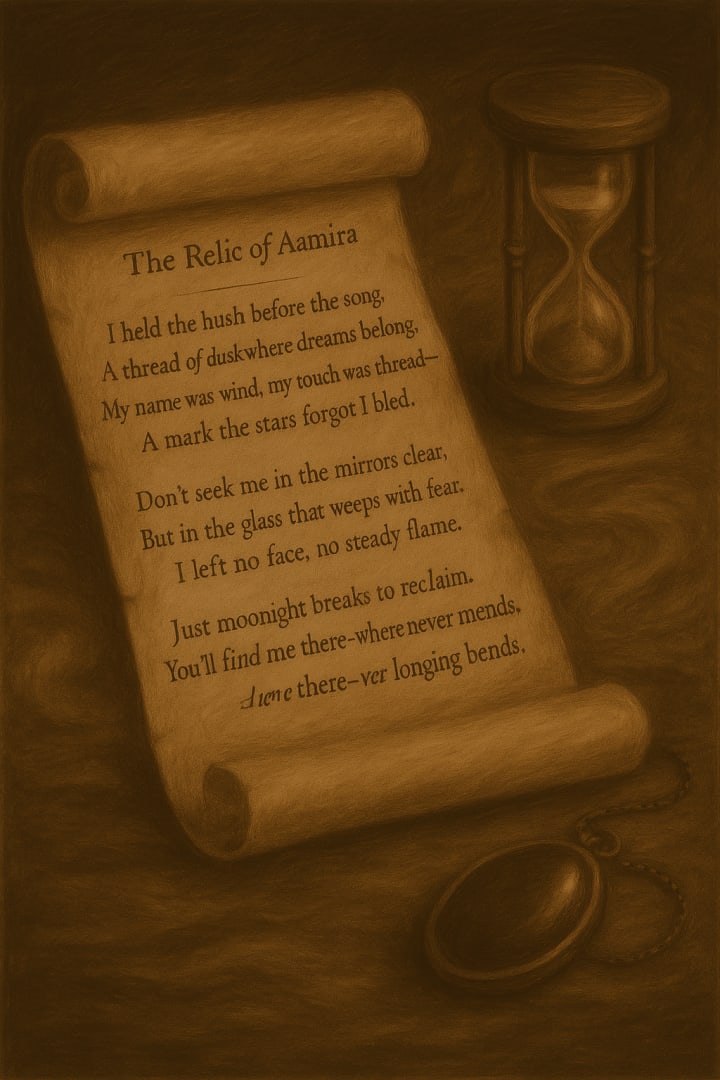 The Relic of Aamira
I held the hush before the song,
A thread of duskwhere dreams belong,
My name was wind, my touch was thread—
A mark the stars forgot I bled.
Don't seek me in the mirrors clear,
But in the glass that weeps with fear.
I left no face, no steady flame.
Just moonight breaks to reclaim.
You'll find me there–where never mends,
there–ver longing bends.